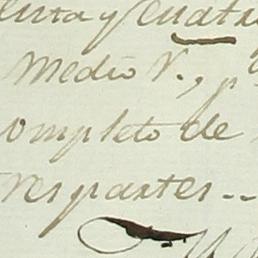 enta y cuatro
Medio r., p
completo de
tres partes --